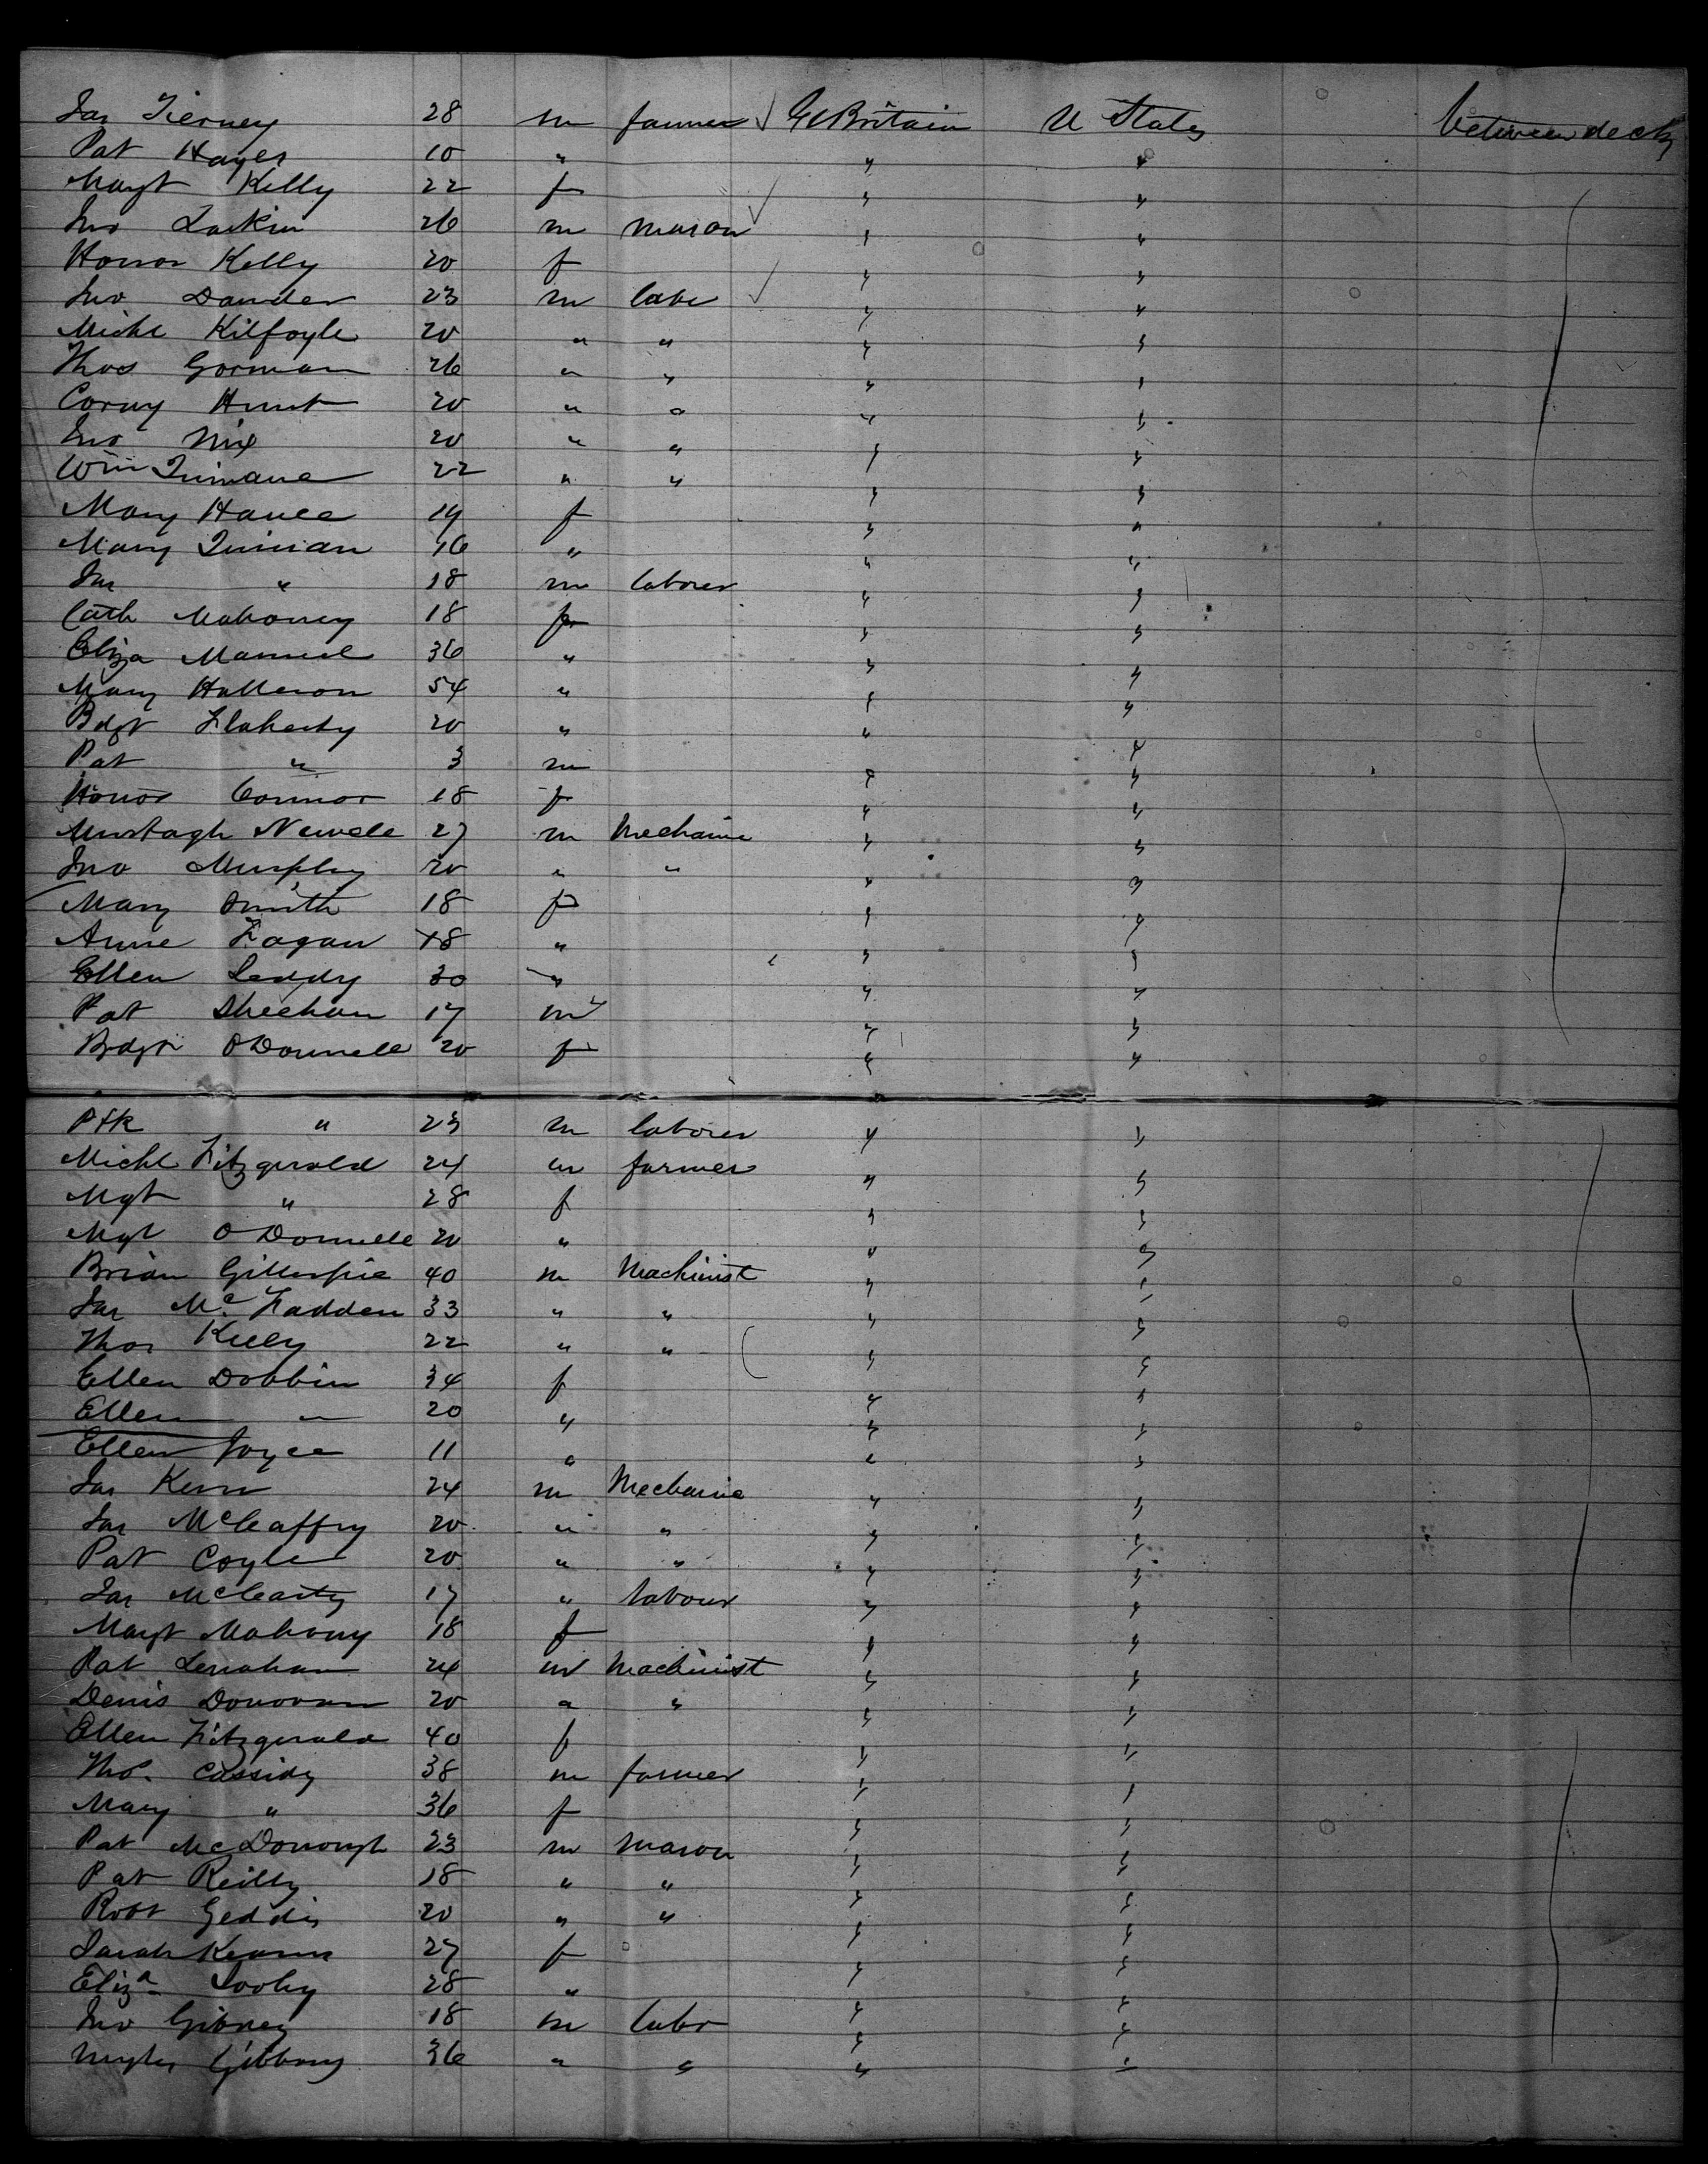 Jas Tierney 28 m farmer Gt Britain U States between decks
Pat Hayes 10 " " "
Margt Kelly 22 f " "
Jno Larkin 26 m mason " "
Honor Kelly 20 f " "
Jno Dander 23 m labr " "
Michl Kilfoyle 20 " " " "
Thos Gorman 26 " " " "
Corny Hunt 20 " " " "
Jno Nix 20 " " " "
Wm Quinane 22 " " " "
Mary Hance 14 f " "
Mary Quinan 16 " " "
Jas " 18 m laborer " "
Cath Mahoney 18 f " "
Eliza 36 " " "
Mary Halleron 54 " " "
Bdgt Flaherty 20 " " "
Pat " 3 m " "
Honor Connor 18 f " "
Murtagh Newell 27 m Mechanic " "
Jno Murphy 20 " " " "
Mary Smith 18 f " "
Anne Fagan 18 " " "
Ellen Leddy 30 " " "
Pat Sheehan 17 m " "
Bdgt O'Donnell 20 f " "
Ptk " 23 m laborer " "
Michl Fitzgerald 24 m farmer " "
Mgt " 28 f " "
Mgt O Donnell 20 " " "
Brian Gillespie 40 m Machinist " "
Jas Mc Fadden 33 " " " "
Thos Kiely 22 " " " "
Ellen Dobbin 34 f " "
Ellen " 20 " " "
Ellen Joyce 11 " " "
Jas Kerr 24 m Mechanic " "
Jas McCaffry 20 " " " "
Pat Coyle 20 " " " "
Jas McCarty 17 " labour " "
Margt Mahony 18 f " "
Pat Lenahan 24 m Machinist " "
Denis Donovan 20 " " " "
Ellen Fitzgerald 40 f " "
Tho. Cassidy 38 m farmer " "
Mary " 36 f " "
Pat McDonough 23 m mason " "
Pat Reilly 18 " " " "
Robt Geddis 20 " " " "
Sarah Kearns 27 f " "
Eliza Looby 28 " " "
Jno Gibney 18 m labr " "
Myles Gibbons 36 " " " "